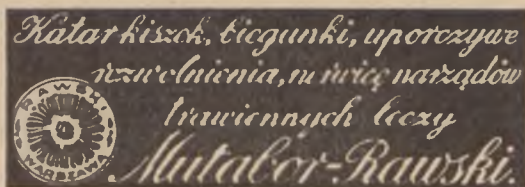 Katar kiszek, biegunki, uporczywe
rozwolnienia, narządów
trawiennych leczy
Mutabor-Rawski.
RAWSKI
WARSZAWA